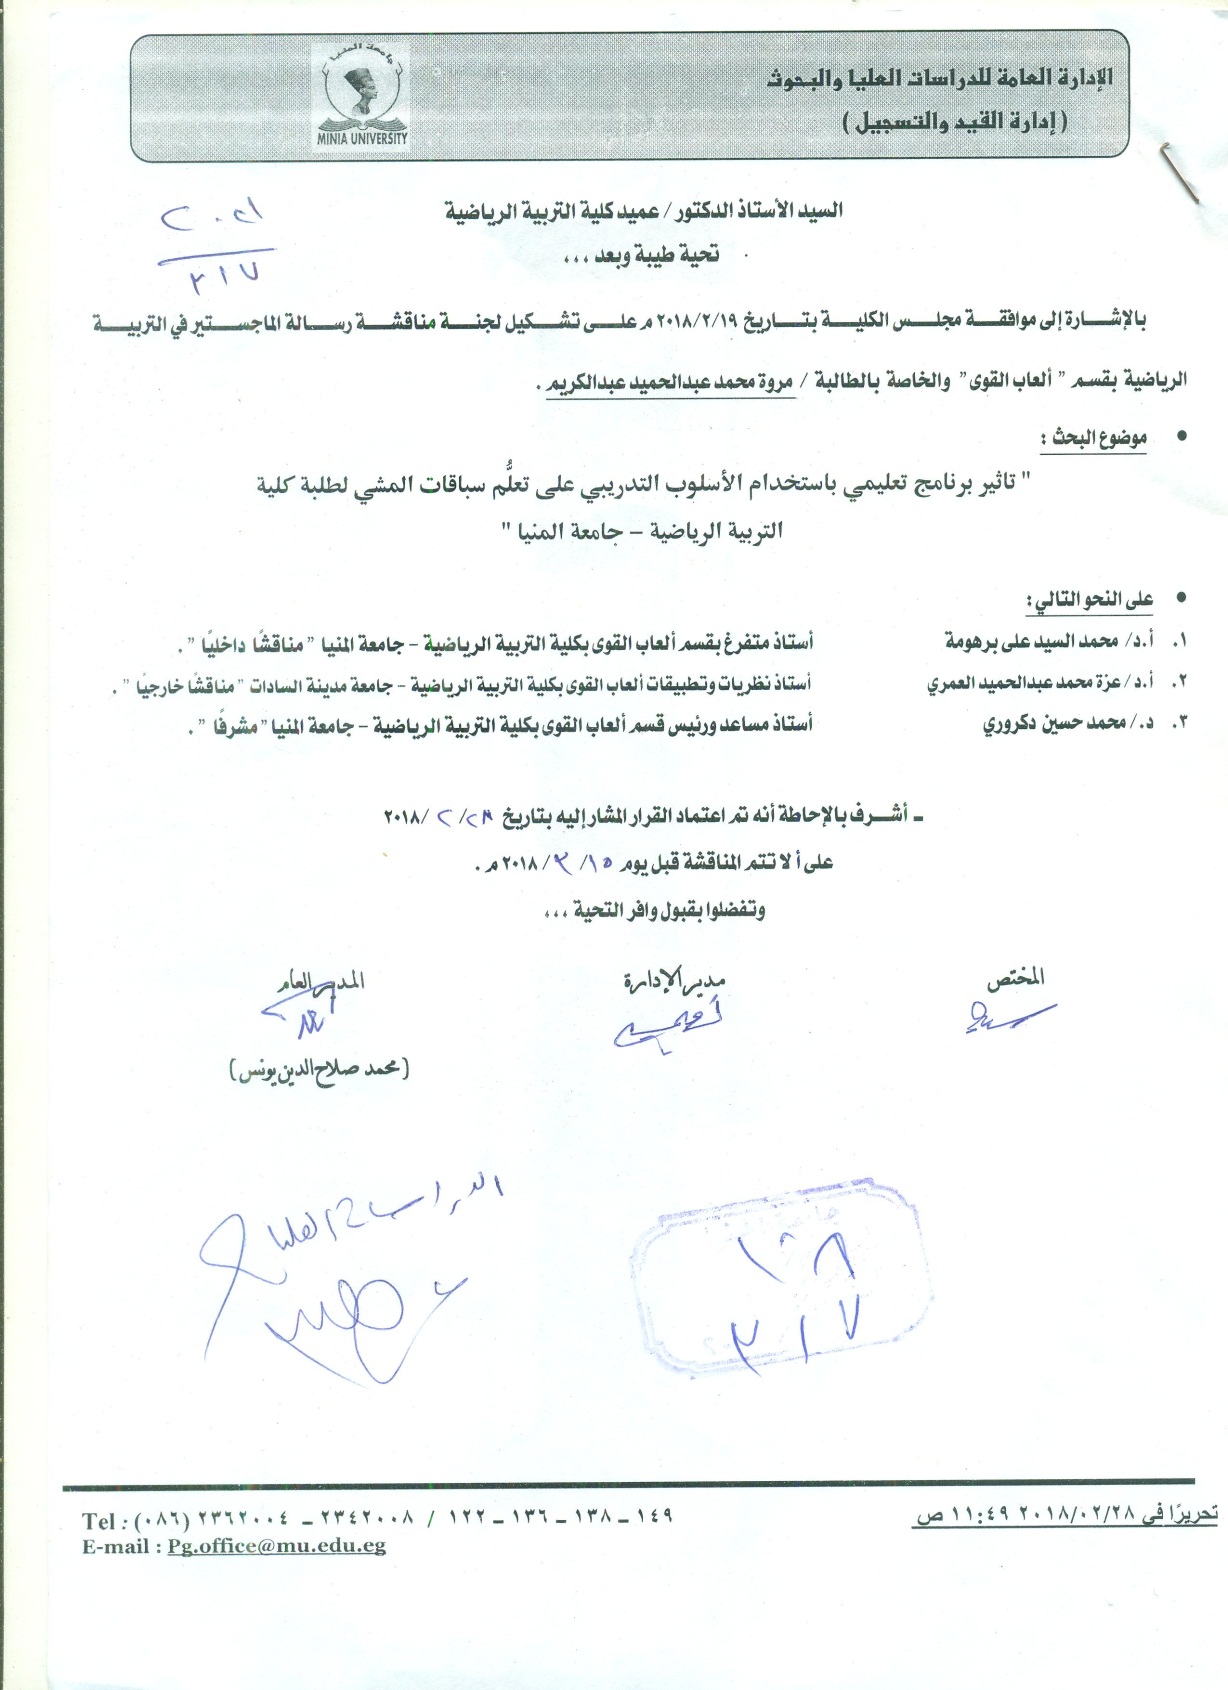 الإدارة العامة للدراسات العليا والبحوث
( إدارة القيد والتسجيل )
جامعة المنيا
MINIA UNIVERSITY
السيد الأستاذ الدكتور / عميد كلية التربية الرياضية
تحية طيبة وبعد ،،،
٣/٧
بالإشارة إلى موافقة مجلس الكلية بتاريخ ٢٠١٨/٢/١٩ م على تشكيل لجنة مناقشة رسالة الماجستير في التربية
الرياضية بقسم " ألعاب القوى" والخاصة بالطالبة / مروة محمد عبدالحميد عبدالكريم .
• موضوع البحث :
" تاثير برنامج تعليمي باستخدام الأسلوب التدريبي على تعلُّم سباقات المشي لطلبة كلية
التربية الرياضية – جامعة المنيا "
• على النحو التالي :
١. أ.د/ محمد السيد على برهومة أستاذ متفرغ بقسم ألعاب القوى بكلية التربية الرياضية – جامعة المنيا " مناقشًا داخليًا " .
٢. أ.د/ عزة محمد عبدالحميد العمري أستاذ نظريات وتطبيقات ألعاب القوى بكلية التربية الرياضية – جامعة مدينة السادات " مناقشًا خارجيًا " .
٣. د./ محمد حسين دكروري أستاذ مساعد ورئيس قسم ألعاب القوى بكلية التربية الرياضية – جامعة المنيا " مشرفًا " .
ـ أشرف بالإحاطة أنه تم اعتماد القرار المشار إليه بتاريخ ٢/ ٢٠١٨
على ألا تتم المناقشة قبل يوم ١٥/ ٣/ ٢٠١٨ م .
وتفضلوا بقبول وافر التحية ،،،
المختص مدير الإدارة المدير العام
(محمد صلاح الدين يونس)
الدراسات العليا
٣/٧
تحريرًا في ٢٠١٨/٠٢/٢٨ ١١:٤٩ ص
Tel : (٠٨٦) ٢٣٦٢٠٠٤ – ٢٣٤٢٠٠٨ / ١٢٢ – ١٣٦ – ١٣٨ – ١٤٩
E-mail : Pg.office@mu.edu.eg